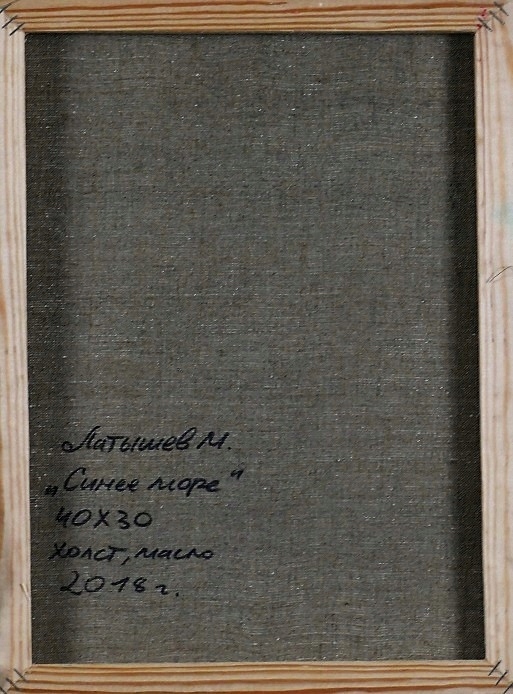 Латышев М.
„Синее море"
40х30
холст, масло
2018 г.